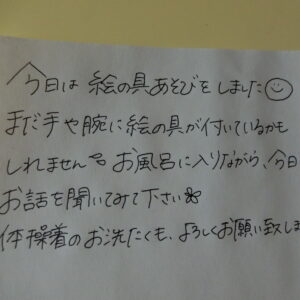 今日は 絵の具あそびをしました☺
まだ手や腕に絵の具が付いているかも
しれません お風呂に入りながら、今日
お話を聞いてみて下さい
体操着のお洗たくも、よろしくお願い致しま